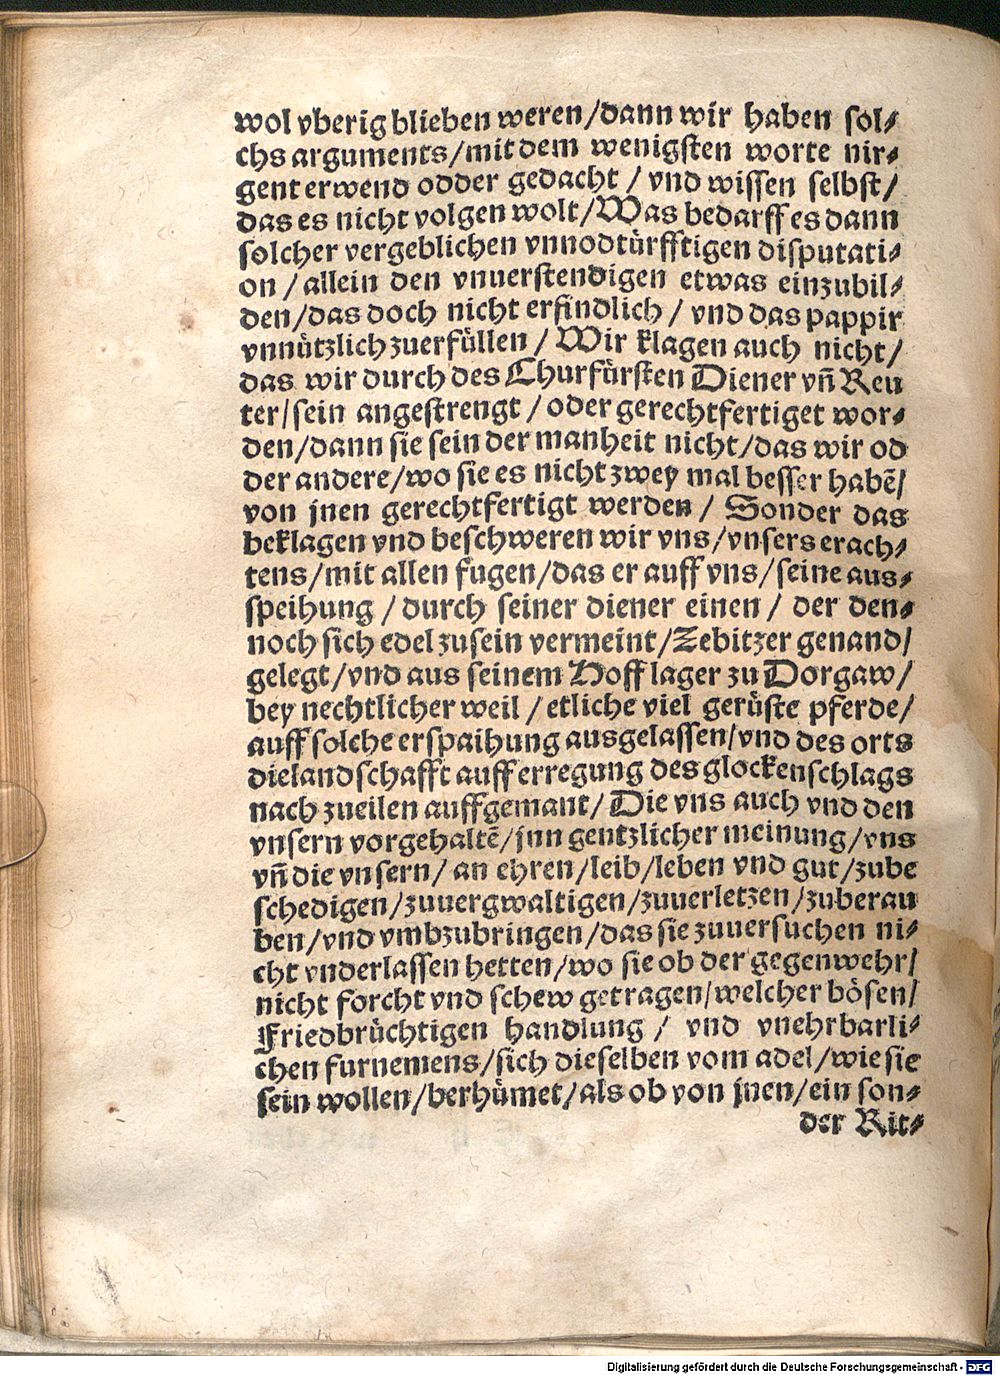 wol vberig blieben weren/dann wir haben sol⸗
chs arguments/mit dem wenigsten worte nir⸗
gent erwend odder gedacht / vnd wissen selbst/
das es nicht volgen wolt/Was bedarff es dann
solcher vergeblichen vnnodtürfftigen disputati⸗
on / allein den vnuerstendigen etwas einzubil⸗
den/das doch nicht erfindlich / vnd das pappir
vnnützlich zuerfüllen / Wir klagen auch nicht/
das wir durch des Churfürsten Diener vñ Reu
ter/sein angestrengt / oder gerechtfertiget wor⸗
den/dann sie sein der manheit nicht/das wir od
der andere/wo sie es nicht zwey mal besser habẽ/
von jnen gerechtfertigt werden / Sonder das
beklagen vnd beschweren wir vns/vnsers erach⸗
tens/mit allen fugen/das er auff vns/seine aus⸗
speihung / durch seiner diener einen / der den⸗
noch sich edel zusein vermeint/Zebitzer genand/
gelegt/vnd aus seinem Hoff lager zu Dorgaw/
bey nechtlicher weil / etliche viel gerüste pferde/
auff solche erspaihung ausgelassen/vnd des orts
die landschafft auff erregung des glockenschlags
nach zueilen auffgemant/ Die vns auch vnd den
vnsern vorgehaltẽ/jnn gentzlicher meinung/vns
vñ die vnsern/ an ehren/leib/leben vnd gut/zube
schedigen/zuuergwaltigen/zuuerletzen/zuberau
ben/vnd vmbzubringen/das sie zuuersuchen ni⸗
cht vnderlassen hetten/wo sie ob der gegenwehr/
nicht forcht vnd schew getragen/welcher bösen/
Friedbrüchtigen handlung / vnd vnehrbarli⸗
chen furnemens/sich dieselben vom adel/wie sie
sein wollen/berhümet/als ob von jnen/ein son⸗
der Rit⸗
Digitalisierung gefördert durch die Deutsche Forschungsgemeinschaft - DFG